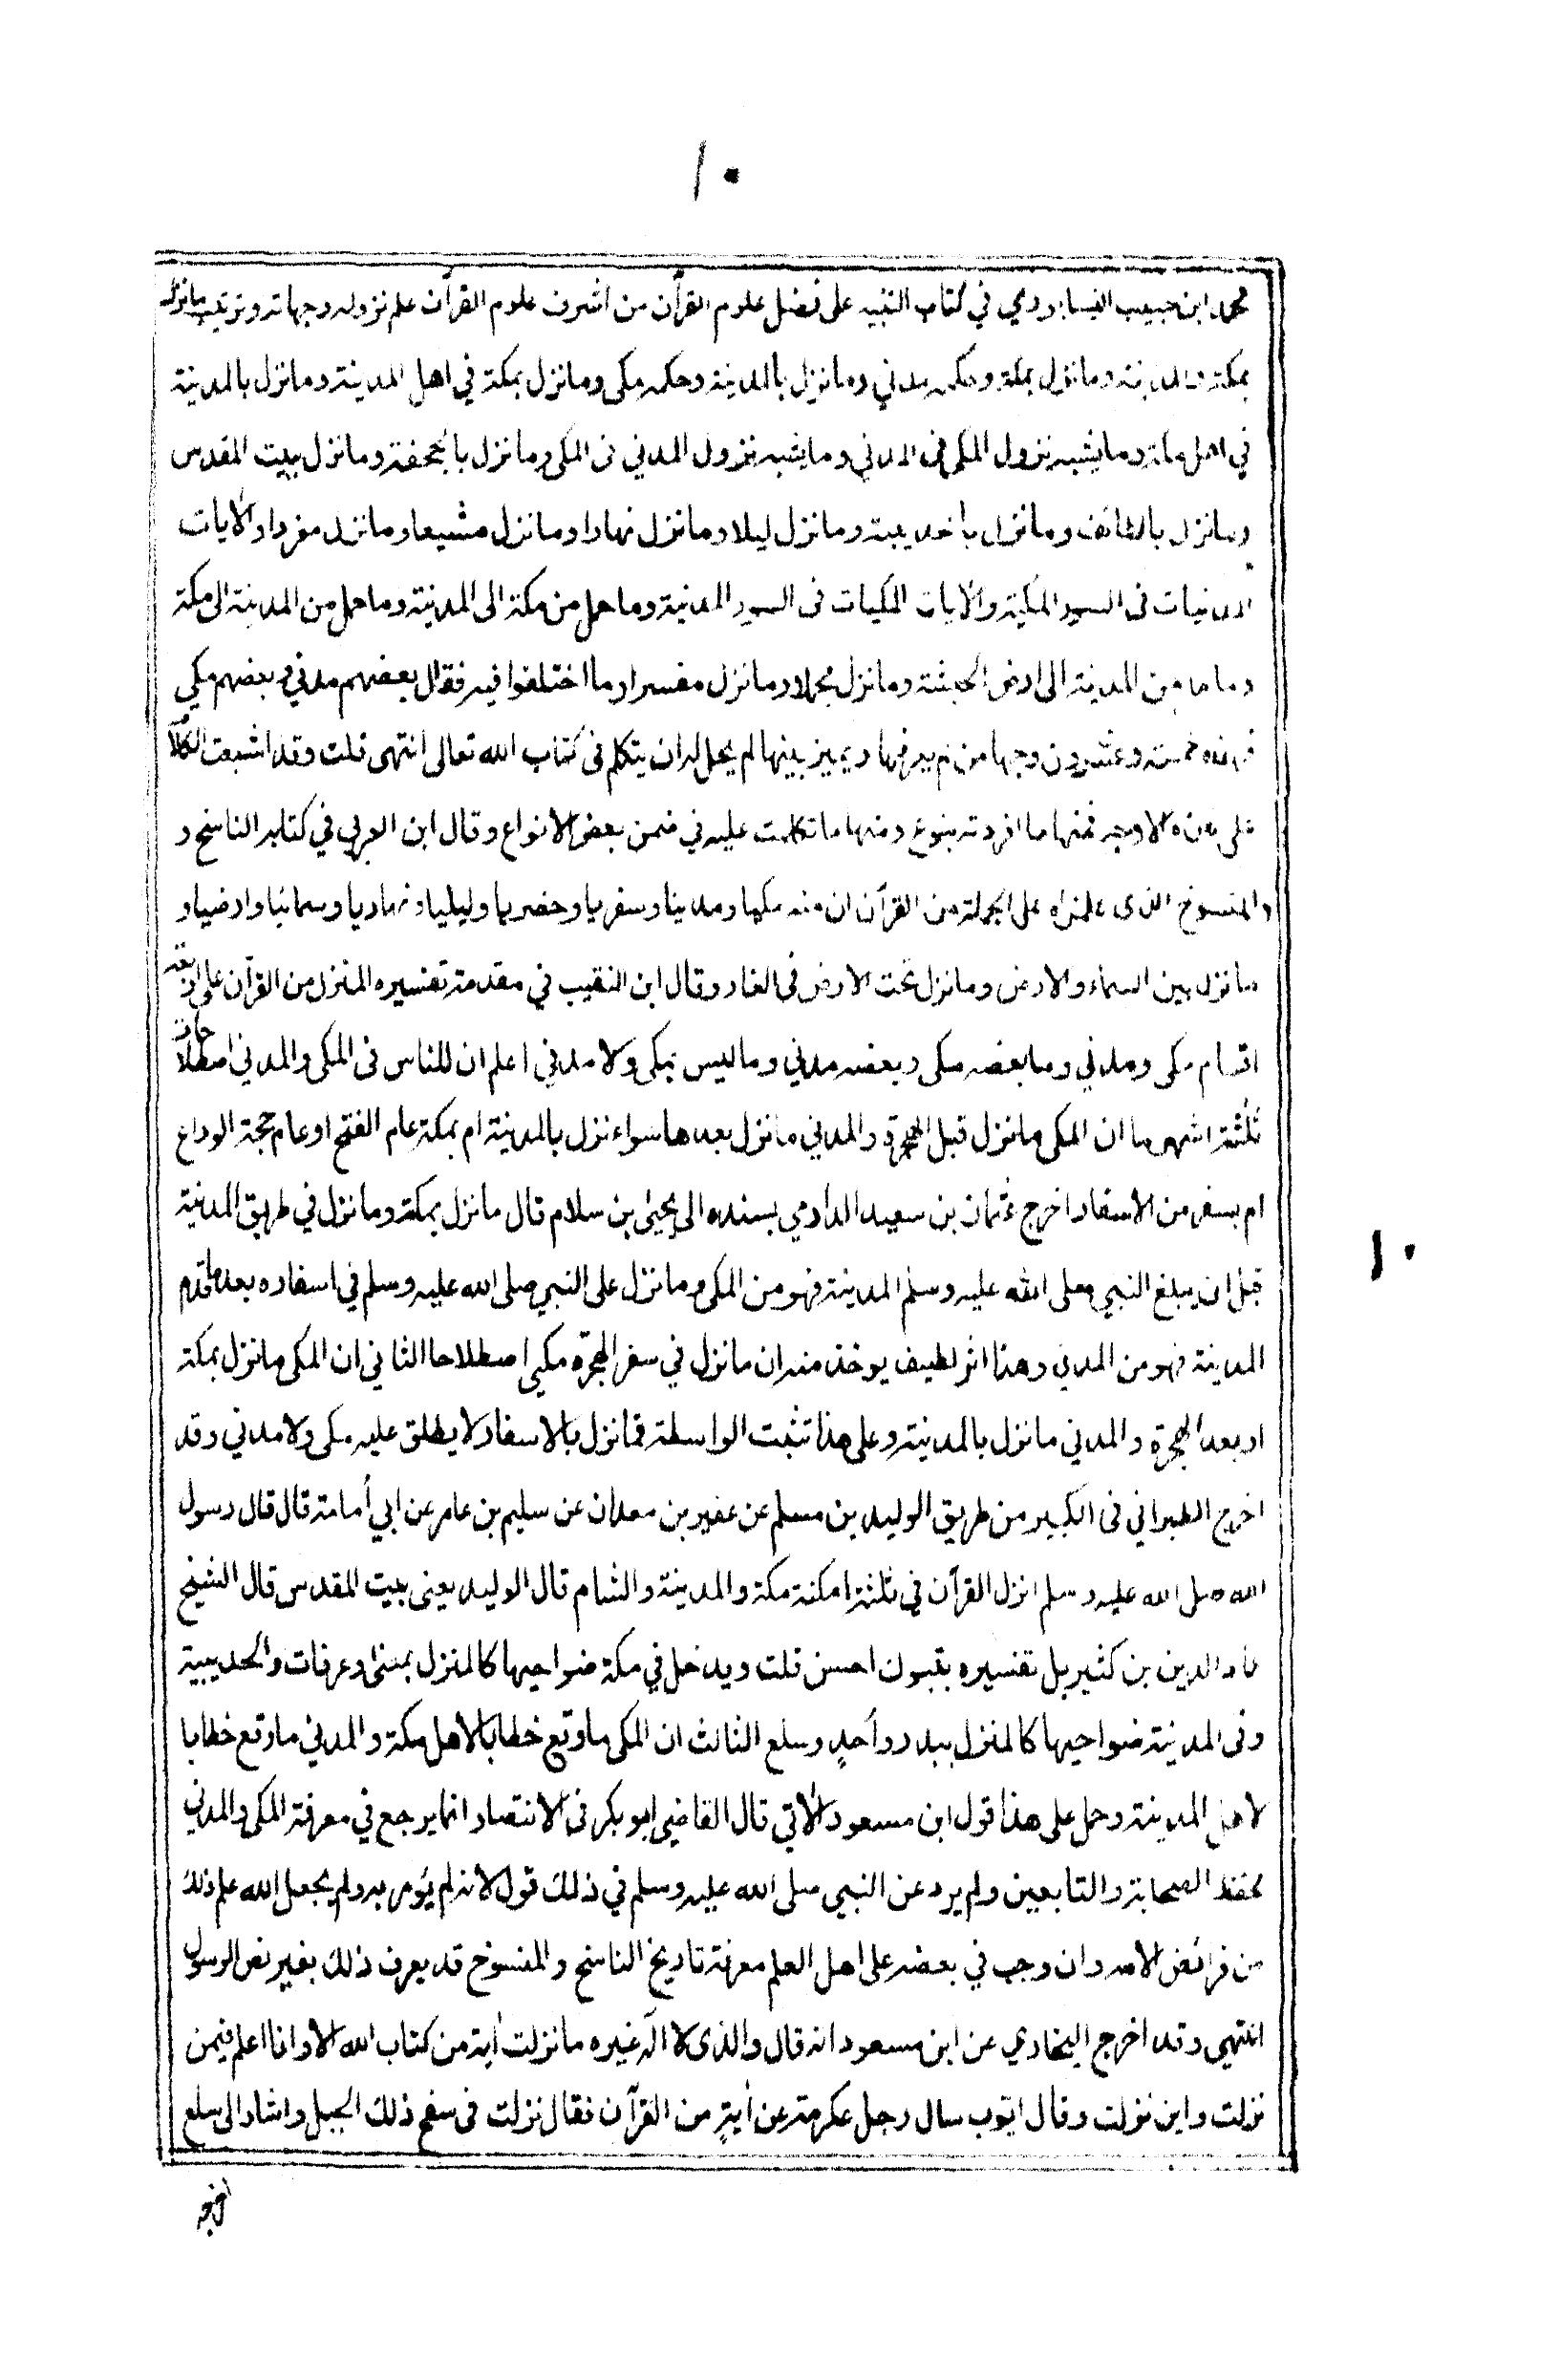 ١٠
محمد ابن حبيب النيسابوري في كتاب التنبيه على فضل علوم القرآن من اشرف علوم القرآن علم نزوله وجهاته وترتيب مانزل
بمكة والمدينة ومانزل بمكة وحكمه مدني ومانزل بالمدينة وحكمه مكى ومانزل بمكة في اهل المدينة ومانزل بالمدينة
في اهل مكة ومايشبه نزول المكى فى المدني ومايشبه نزول المدني فى المكى ومانزل بالجحفة ومانزل ببيت المقدس
ومانزل بالطائف ومانزل بالحديبية ومانزل ليلا ومانزل نهارا ومانزل مشيعا ومانزل مفردا والآيات
المدنيات فى السور المكية والآيات المكيات فى السور المدنية وماحمل من مكة الى المدينة وماحمل من المدينة الى مكة
وماحمل من المدينة الى ارض الحبشة ومانزل مجملا ومانزل مفسرا وما اختلفوا فيه فقال بعضهم مدني وبعضهم مكي
فهذه خمسة وعشرون وجها من لم يعرفها ويميز بينها لم يحل له ان يتكلم فى كتاب الله تعالى انتهى قلت وقد اشبعت الكلام
على هذه الاوجه فمنها ما افردته بنوع ومنها ما تكلمت عليه في ضمن بعض الانواع وقال ابن العربي في كتابه الناسخ و
والمنسوخ الذى علمناه على الجملة من القرآن ان منه مكيا ومدنيا وسفريا وحضريا وليليا ونهاريا وسمائيا وارضيا و
مانزل بين السماء والارض ومانزل تحت الارض فى الغار وقال ابن النقيب في مقدمة تفسيره المنزل من القرآن على اربعة
اقسام مكى ومدني وما بعضه مكى وبعضه مدني وماليس بمكى ولا مدني اعلم ان للناس فى المكى والمدني اصطلاحات
ثلثة اشهرها ان المكى مانزل قبل الهجرة والمدني مانزل بعدها سواء نزل بالمدينة ام بمكة عام الفتح او عام حجة الوداع
ام بسفر من الاسفار اخرج عثمان بن سعيد الدارمي بسنده الى يحيى بن سلام قال مانزل بمكة ومانزل في طريق المدينة
قبل ان يبلغ النبي صلى الله عليه وسلم المدينة فهو من المكى ومانزل على النبي صلى الله عليه وسلم في اسفاره بعد ماقدم
المدينة فهو من المدني وهذا اثر لطيف يوخذ منه ان مانزل في سفر الهجرة مكي اصطلاحا الثاني ان المكى مانزل بمكة
او بعد الهجرة والمدني مانزل بالمدينة وعلى هذا تثبت الواسطة فمانزل بالاسفار لا يطلق عليه مكى ولا مدني وقد
اخرج الطبراني فى الكبير من طريق الوليد بن مسلم عن عفير بن معدان عن سليم بن عامر عن ابي أمامة قال قال رسول
الله صلى الله عليه وسلم انزل القرآن في ثلثة امكنة مكة والمدينة والشام قال الوليد يعنى بيت المقدس قال الشيخ
عماد الدين بن كثير بل تفسيره بتبوك احسن قلت ويدخل في مكة ضواحيها كالمنزل بمنى وعرفات والحديبية
وفى المدينة ضواحيها كالمنزل ببدر وأحدٍ وسلع الثالث ان المكى ماوقع خطابا لاهل مكة والمدني ماوقع خطابا
لاهل المدينة وحمل على هذا قول ابن مسعود الآتي قال القاضي ابو بكر فى الانتصار انما يرجع في معرفة المكى والمدني
لحفظ الصحابة والتابعين ولم يرد عن النبي صلى الله عليه وسلم في ذلك قول لانه لم يُومر به ولم يجعل الله علم ذلك
من فرائض الامة وان وجب في بعضه على اهل العلم معرفة تاريخ الناسخ والمنسوخ قد يعرف ذلك بغير نص الرسول
انتهى وقد اخرج البخاري عن ابن مسعود انه قال والذى لا اله غيره مانزلت أية من كتاب الله الا وانا اعلم فيمن
نزلت واين نزلت وقال ايّوب سال رجل عكرمة عن أيةٍ من القرآن فقال نزلت فى سفح ذلك الجبل واشار الى سلع
اخرجه
١٠